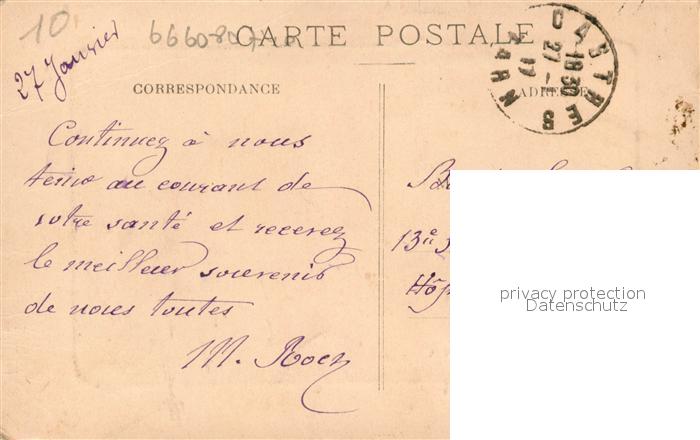 10
27 Janvier
CARTE POSTALE
CASTRES
TARN
18 30
27 - 1
17
CORRESPONDANCE
ADRESSE
Continuez à nous
tenir au courant de
votre santé et recevez
le meilleur souvenir
de nous toutes
M.
13e
Hôp
privacy protection
Datenschutz